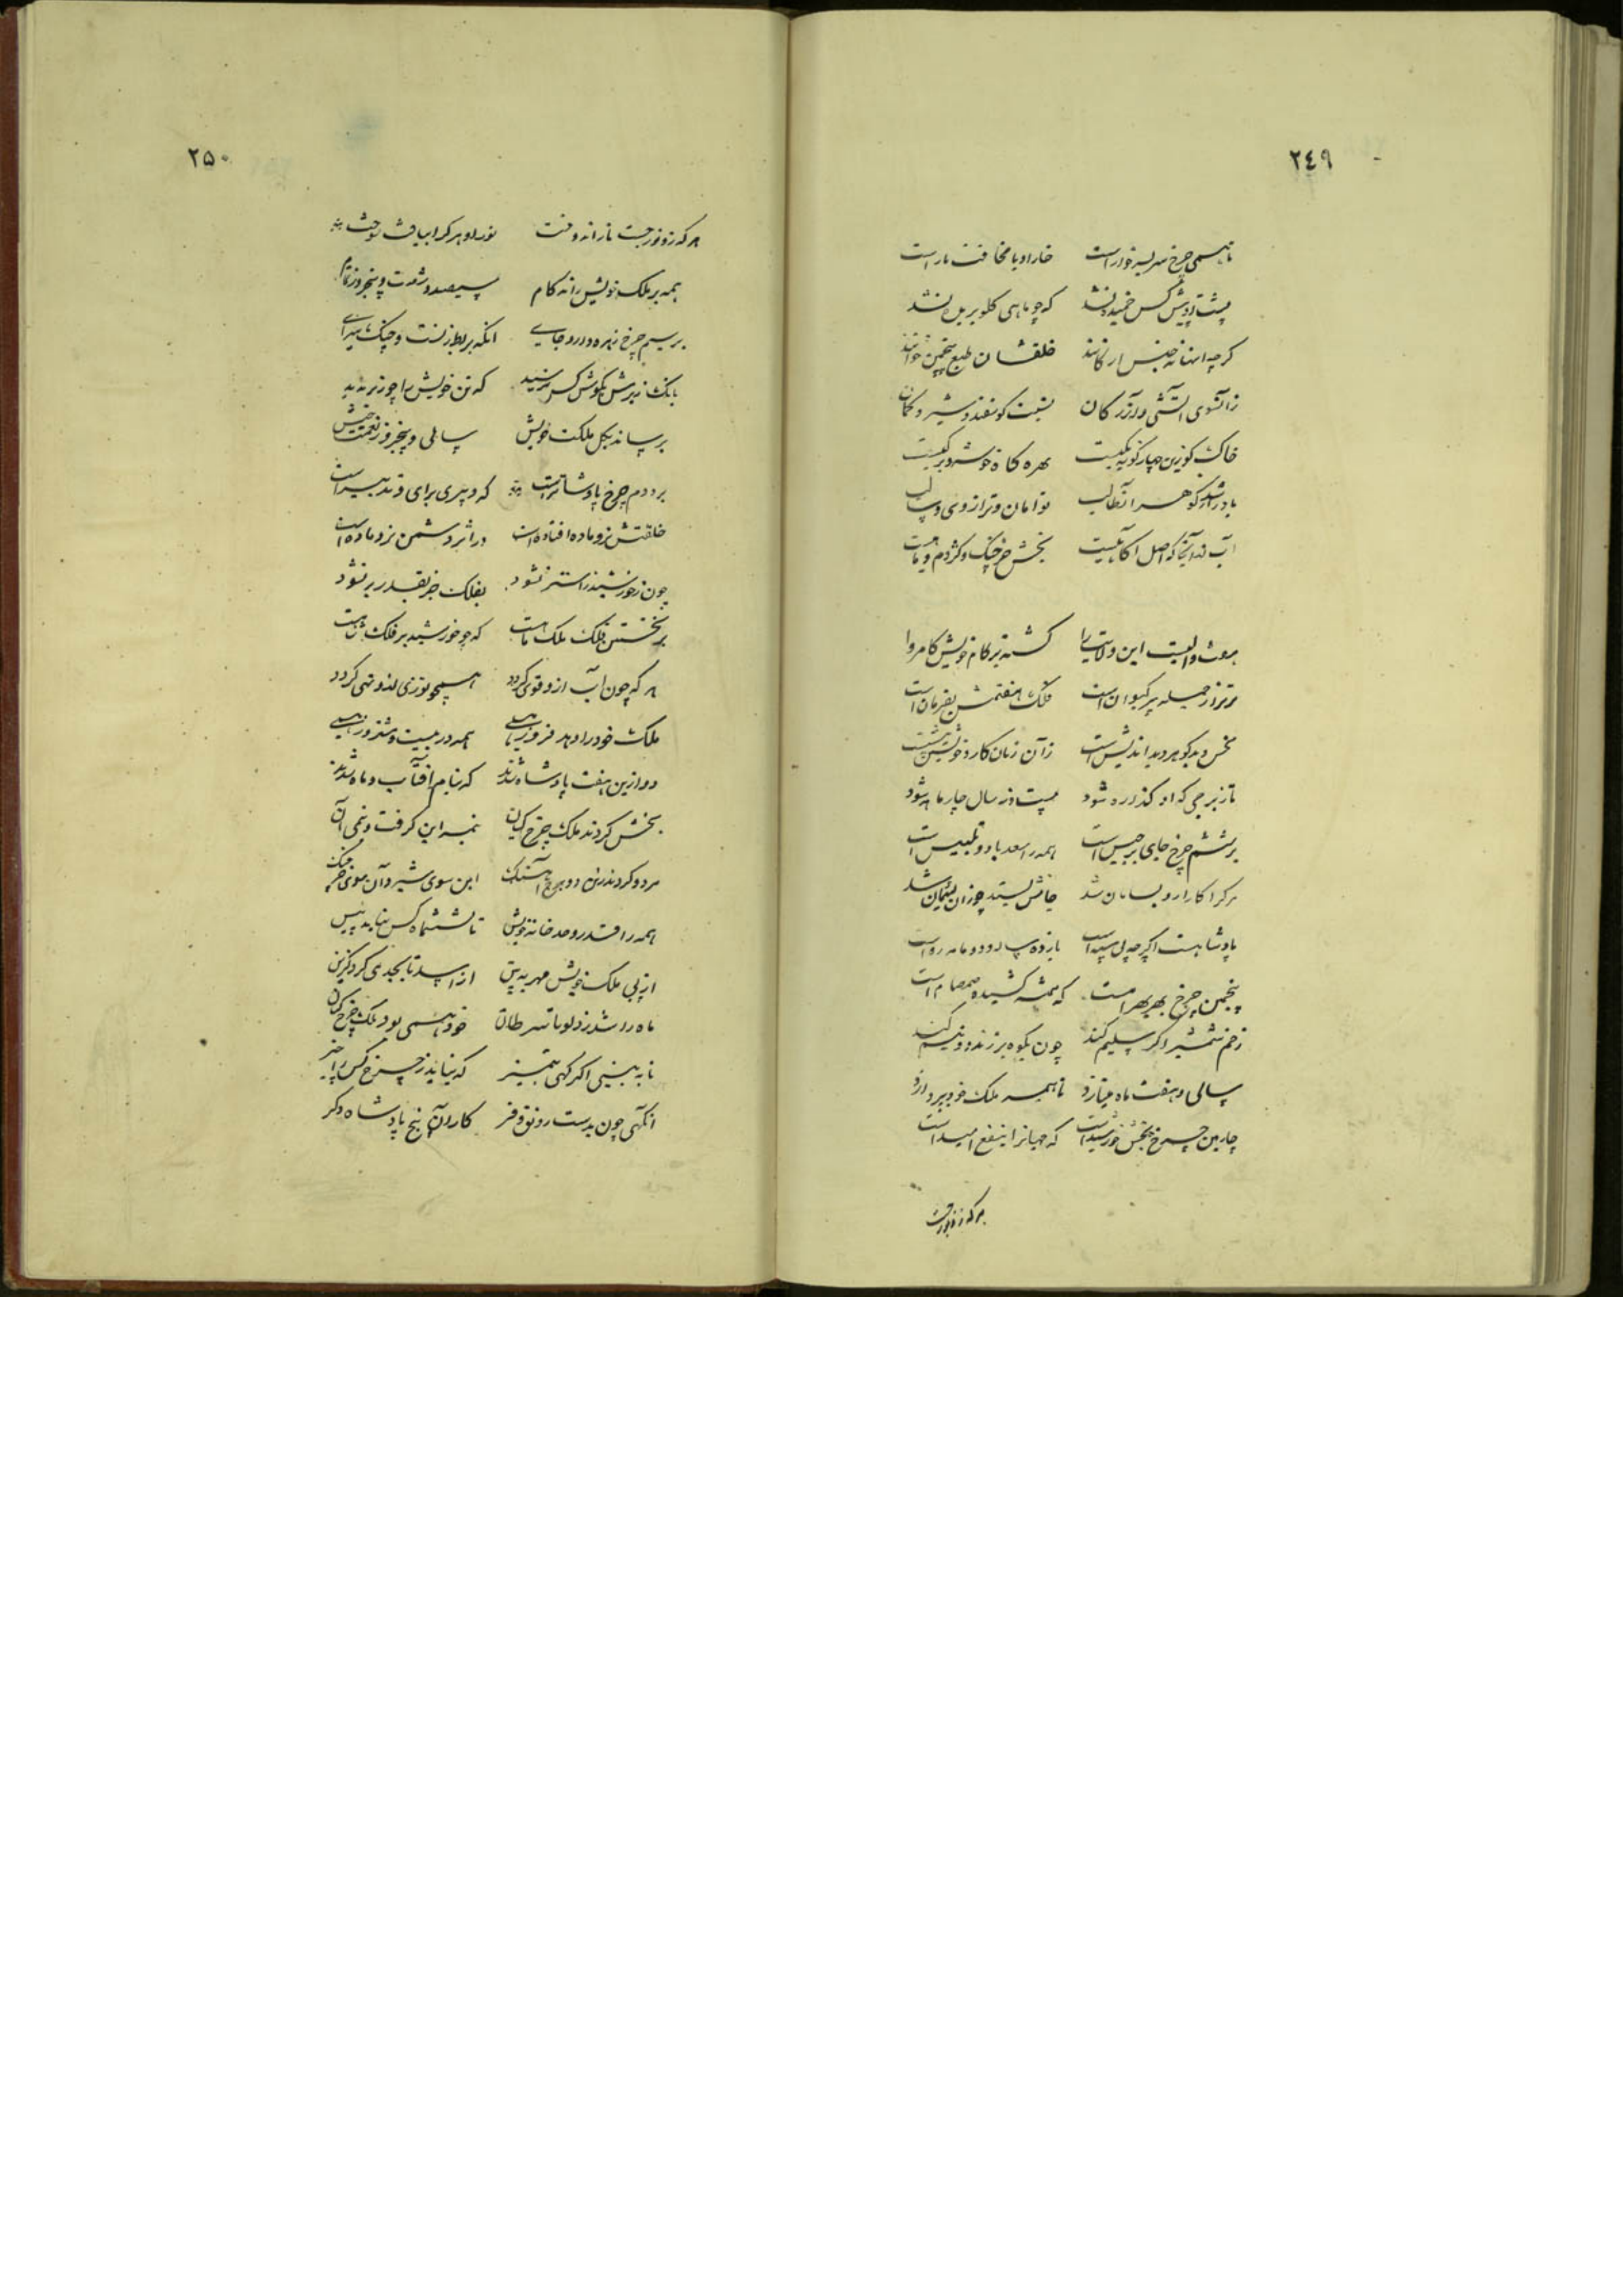 ٢٤٩
تا همی چرخ سر بسر خوار است خار او با مخافت مار است
پشت او پیش کس خمیده نشد که چو ماهی گلو بریده نشد
گر چه اینها نه جنس ارکانند خلقشان طبع پنجمین خوانند
زآتشوی آتشی در آذرگان نسبت گوسفند و شیر و کمان
خاک کو زین چهار گونه یکیست بهره گاو خوشه و بزکیست
باد گوهر را طالب توامان و ترازوی و دولب
آب نه آنجا که اصل آگاهیست بخش خرچنگ و کژدم و ماهیست
هفت والیست این ولایت را گشته بر کام خویش کامروا
برتر از جمله پیر کیوان است فلک هفتمش بفرمان است
نحس و بدگوهر و بداندیش است زآن زمان کار و خویش است
تا ز برجی که او گذرده شود بیست و نه سال چار ماه شود
بر ششم چرخ جای برجیس است همه را سعد باد و تلبیس است
هر کرا کار ازو بسامان شد جانش بستد چو زان پشیمان شد
پادشاهست اگر چه لی سپه است یازده سال و دو ماه رواست
پنجمین چرخ بهر بهرامست که همیشه کشیده صمصام است
زخم شمشیر اگر سلیم کند چون بکوه بر زند دو نیم کند
سالی و هفت ماه میتازد تا همه ملک خود بپردازد
چارمین چرخ بخش خورشید است که جهانرا بنفع امید است
هر که زو نور جست
٢٥٠
هر که زو نور جست نار اندوخت نور او هر کرا بیافت بسوخت
همه بر ملک خویش راند کام سیصد و شصت و پنجروز تمام
بر سیم چرخ زهره دارد جای آنکه بربط زنست و چنگ سرای
بانگ زیرش بگوش کس نرسید که تن خویش را چو زیر ندید
برساند بکل ملکت خویش سالی و پنجروز نعمت خویش
بر دوم چرخ پادشا تیر است که دبیری برای و تدبیر است
خلقتش نر و ماده افتاده است در اثر دشمن نر و ماده است
چون ز خورشید زاستر نشود بفلک جز بقدر بر نشود
بر نخستین فلک ملک ماهست که چو خورشید بر فلک شاهست
هر که چون آب ازو قوی گردد همچو نوزی ازو تهی گردد
ملک خود را دهد فروز همی همه در بیست و هشت روز همی
دو ازین هفت پادشاه شدند که بنام آفتاب و ماه شدند
بخش کردند ملک چرخ کیان نیمه این گرفت و نیمی آن
هر دو کردند زین دو برج آهنگ این سوی شیر و آن سوی خرچنگ
همه را قدر و حد خانه خویش تا شش ماه کس نیاید پیش
از پی ملک خویش مهر به بین از اسد تا بجدی کرد گزین
ماه را شد ز دلو تا سرطان خود همی بود ملک چرخ کیان
تا به بینی اگر کهی تمییز که نیاید ز چرخ کس را چیز
آنگهی چون بدست رونق و فر کار دان پنج پادشاه دگر